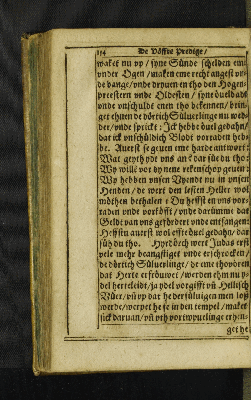 154 De Vöffte Predige/
waket nu vp / syne Sünde schelden em
vnder Ogen / maken eme recht angest vn-
de bange / vnde dryuen en tho den Hogen-
preestern vnde Oldesten / syne öueldadt
vnde vnschuldt enen tho bekennen / brin-
get ehnen de dörtich Süluerlinge nu wed-
der / vnde sprickt: Ick hebbe öuel gedahn /
dat ick vnschüldich Blodt vorraden heb-
be. Auerst se geuen eme harde antwort:
Wat geyth ydt vns an? dar süe du tho:
Wy willē vor dy nene rekenschop geuen:
Wy hebben vnsen Vyendt nu in vnsen
Henden / de wert den lesten Heller wol
möthen bethalen: Du heffst en vns vor-
raden vnde vorköfft / vnde darümme dat
Geldt van vns gefordert vnde entfangen:
Heffstu auerst wol efft öuel gedahn / dar
süh du tho. Hyrdörch wert Judas erst
vele mehr beangstiget vnde erschrocken /
de dörtich Süluerlinge / de eme thovören
dat Herte erfröuwet / werden ehm nu y-
del herteleidt / ja ydel vorgifft vn̄ Hellisch
Vüer / vn̄ vp dat he der süluigen men loß
werde / werpet he se in den tempel / maket
sick daruan / vn̄ vth vortwyuelinge erhen-
get he